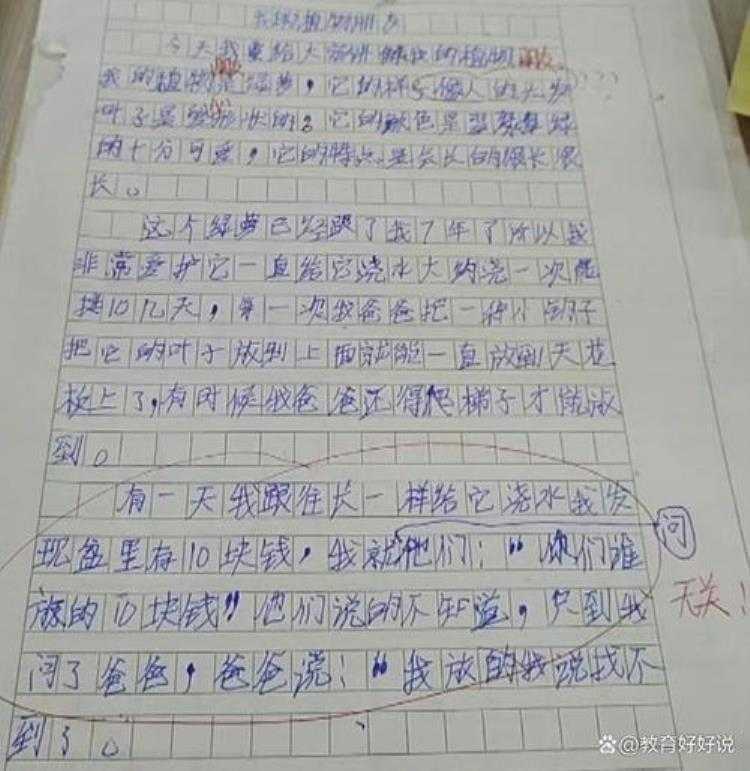 我的植物朋友
今天我要给大家讲解我的植物朋友。
我的植物是绿萝,它的样子像人的头发
叶子是形状的。它的颜色是翠绿
的十分可爱,它的特点是长长的很长很
长。
这个绿萝已经跟了我7年了所以我
非常爱护它一直给它浇水大约浇一次能
挺10几天,有一次我爸爸把一种小钩子
把它的叶子放到上面就能一直放到天花
板上了,有时候我爸爸还得爬梯子才能放
到。
有一天我跟往长一样给它浇水我发
现盆里有10块钱,我就他们:“你们谁
问
放的10块钱”他们说的不知道,只到我
无关!
问了爸爸,爸爸说:“我放的我说找不
到了。
@教育好好说